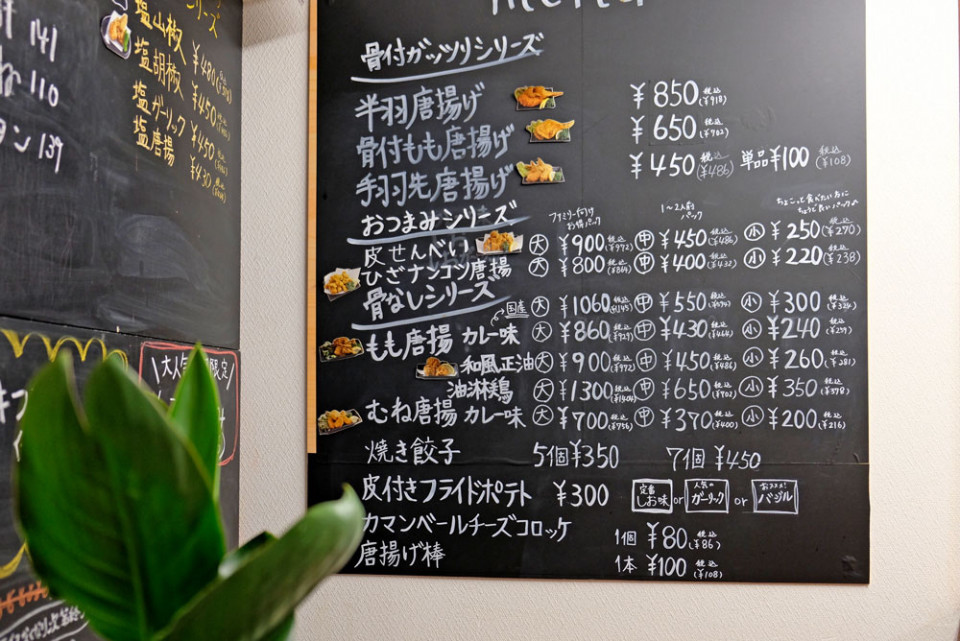 シリーズ
141
110
タン 139
塩山椒 ¥480
塩胡椒 ¥450
塩ガーリック ¥450
塩唐揚 ¥430
大人気 限定
骨付ガッツリシリーズ
半羽唐揚げ ¥850 税込(¥918)
骨付もも唐揚げ ¥650 税込(¥702)
手羽先唐揚げ ¥450 税込(¥486) 単品¥100 税込(¥108)
おつまみシリーズ ファミリー向け お得パック 1〜2人前 パック ちょこっと食べたい方に ちょうどいいパック
皮せんべい 大 ¥900 税込(¥972) 中 ¥450 税込(¥486) 小 ¥250 税込(¥270)
ひざナンコツ唐揚 大 ¥800 税込(¥864) 中 ¥400 税込(¥432) 小 ¥220 税込(¥238)
骨なしシリーズ
国産 大 ¥1060 税込 中 ¥550 税込(¥594) 小 ¥300 税込(¥324)
もも唐揚 カレー味 大 ¥860 税込(¥929) 中 ¥430 税込(¥464) 小 ¥240 税込(¥259)
和風正油 大 ¥900 税込(¥972) 中 ¥450 税込(¥486) 小 ¥260 税込(¥281)
油淋鶏 大 ¥1300 税込(¥1404) 中 ¥650 税込(¥702) 小 ¥350 税込(¥378)
むね唐揚 カレー味 大 ¥700 税込(¥756) 中 ¥370 税込(¥400) 小 ¥200 税込(¥216)
焼き餃子 5個¥350 7個 ¥450
皮付きフライドポテト ¥300 定番 しお味 or 人気の ガーリック or おススメ! バジル
カマンベールチーズコロッケ 1個 ¥80 税込(¥86)
唐揚げ棒 1本 ¥100 税込(¥108)